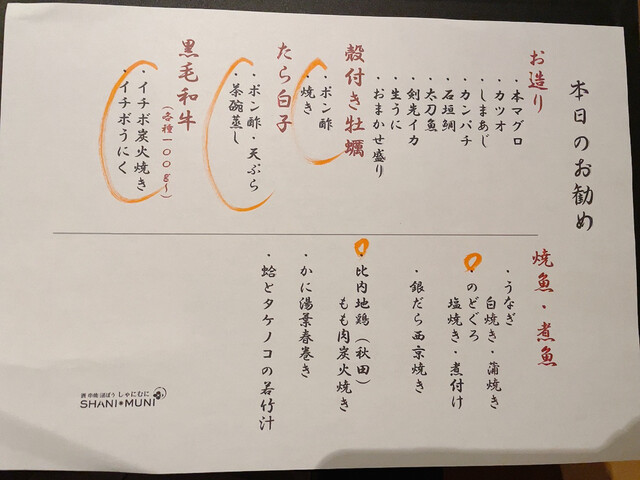 本日のお勧め
お造り
・本マグロ
・カツオ
・しまあじ
・カンパチ
・石垣鯛
・太刀魚
・剣先イカ
・生うに
・おまかせ盛り
殻付き牡蠣
・ポン酢
・焼き
たら白子
・ポン酢・天ぷら
・茶碗蒸し
黒毛和牛
(各種一〇〇g〜)
・イチボ炭火焼き
・イチボうにく
焼魚・煮魚
・うなぎ
白焼き・蒲焼き
・のどぐろ
塩焼き・煮付け
・銀だら西京焼き
・比内地鶏(秋田)
もも肉炭火焼き
・かに湯葉春巻き
・蛤とタケノコの若竹汁
しゃにむに
SHANI★MUNI